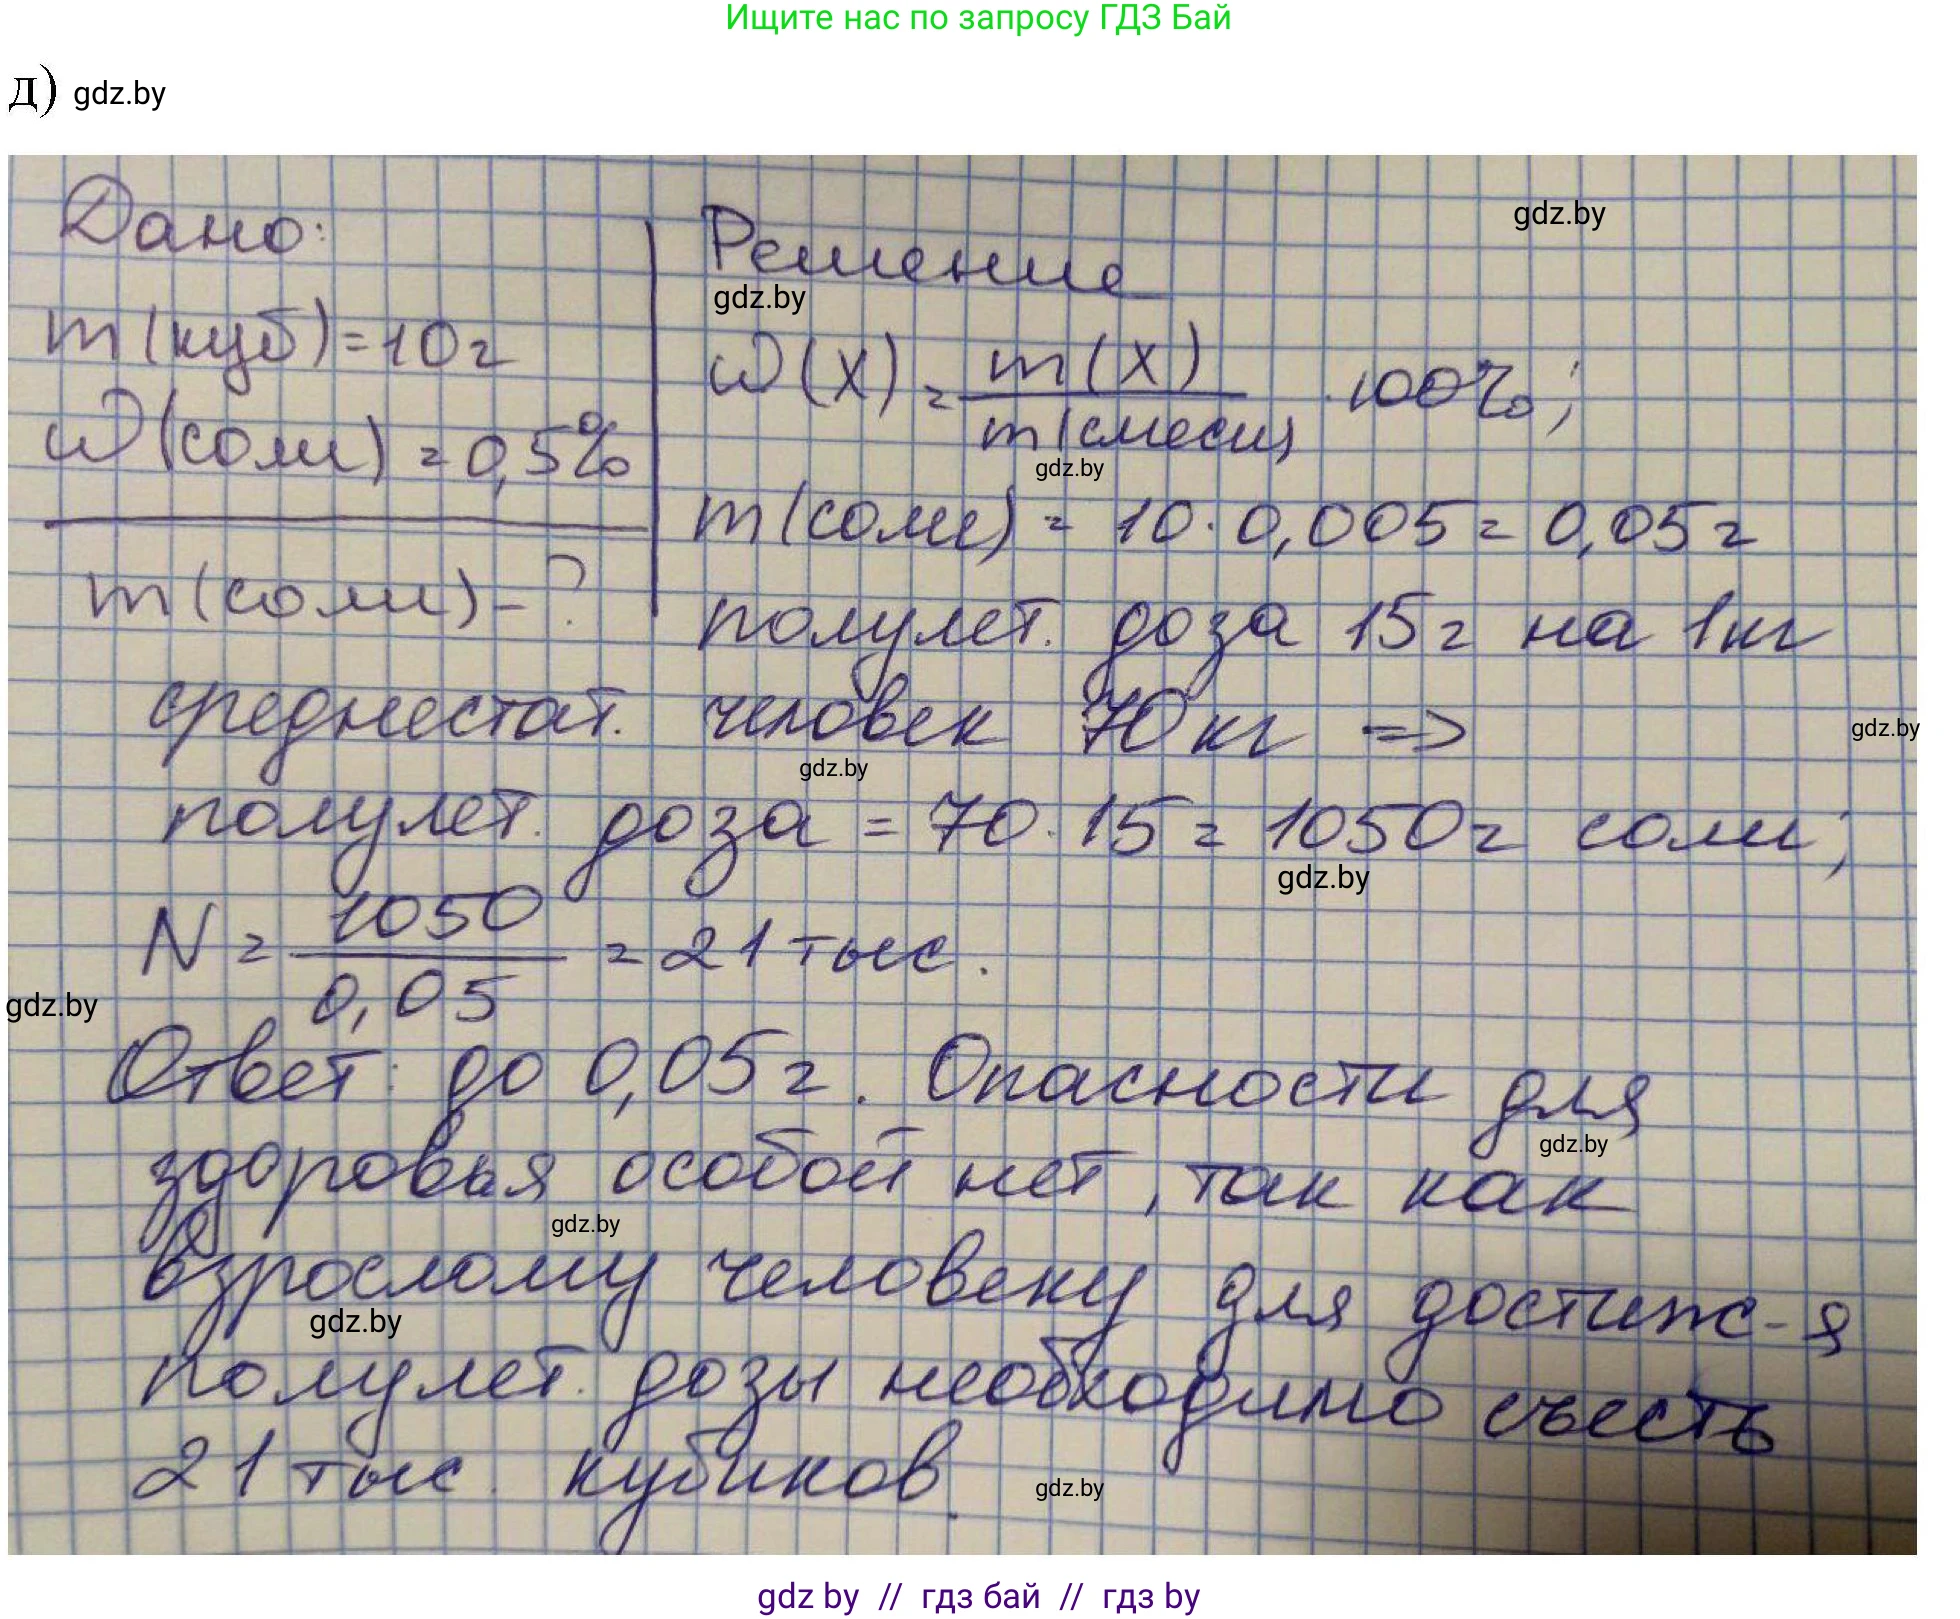 Ищите нас по запросу ГДЗ Бай
д) gdz.by
Дано:
gdz.by
Решение
gdz.by
m(куб)=10г
ω(x) = m(x) / m(смеси) · 100%;
ω(соли) = 0,5%
gdz.by
m(соли) = 10 · 0,005 = 0,05г
m(соли) - ?
полулет. доза 15г на 1кг
среднестат. человек 70кг =>
gdz.by
gdz.by
полулет. доза = 70 · 15 = 1050г соли;
gdz.by
N = 1050 / 0,05 = 21 тыс.
gdz.by
Ответ: до 0,05г. Опасности для
gdz.by
здоровья особой нет, так как
gdz.by
взрослому человеку для достиж-я
gdz.by
полулет. дозы необходимо съесть
21 тыс. кубиков.
gdz.by
gdz by // гдз бай // гдз by